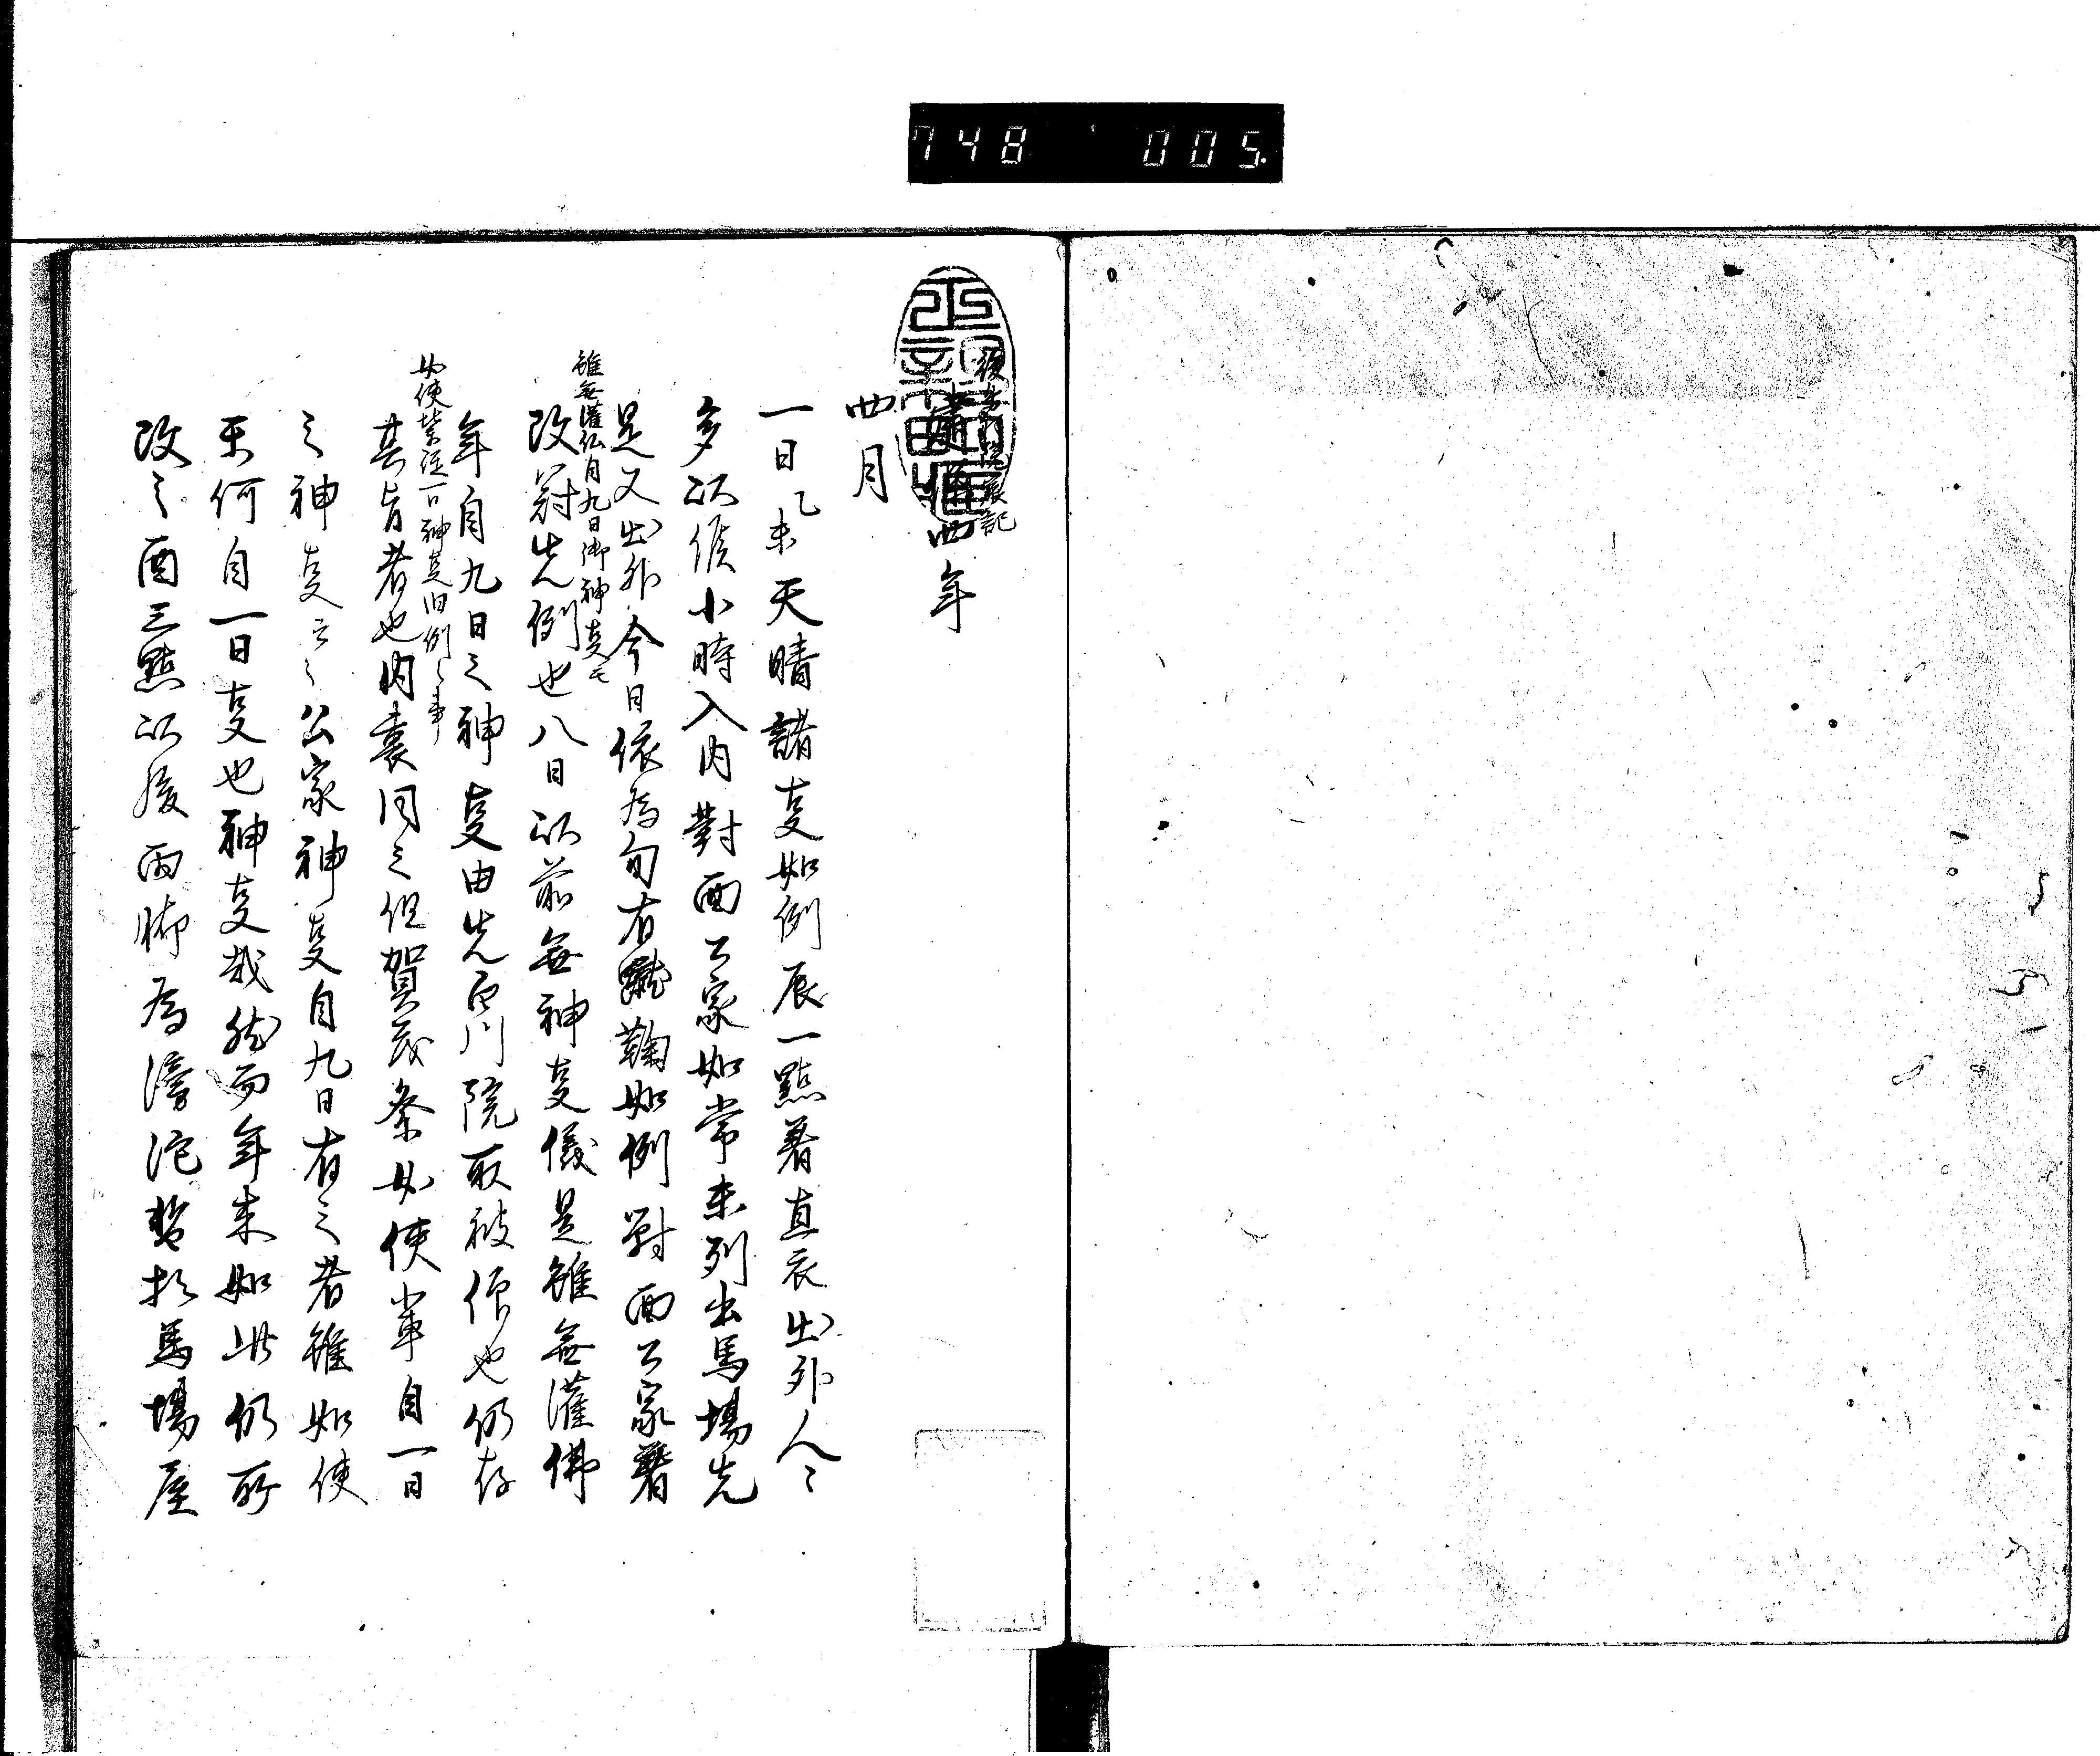 748 005.
後鳥羽院宸記
四年
四月
一日乙未天晴諸事如例辰一點着直衣出外人々
多以候小時入内對面公家如常未列出馬場先
是又出外今日依為旬有蹴鞠如例對面公家着
雖無灌仏自九日御神事
改冠先例也八日以前無神事儀是雖無灌佛
年自九日之神事由先白川院取被仰也仍存
如使 一日神事旧例之事
其旨者也内裏同之但賀茂祭女使軰自一日
之神事云々公家神事自九日有之者雖如使
何自一日事也神事哉然而年来如此仍所
改之酉三點以後雨脚為滂沱暫於馬場屋